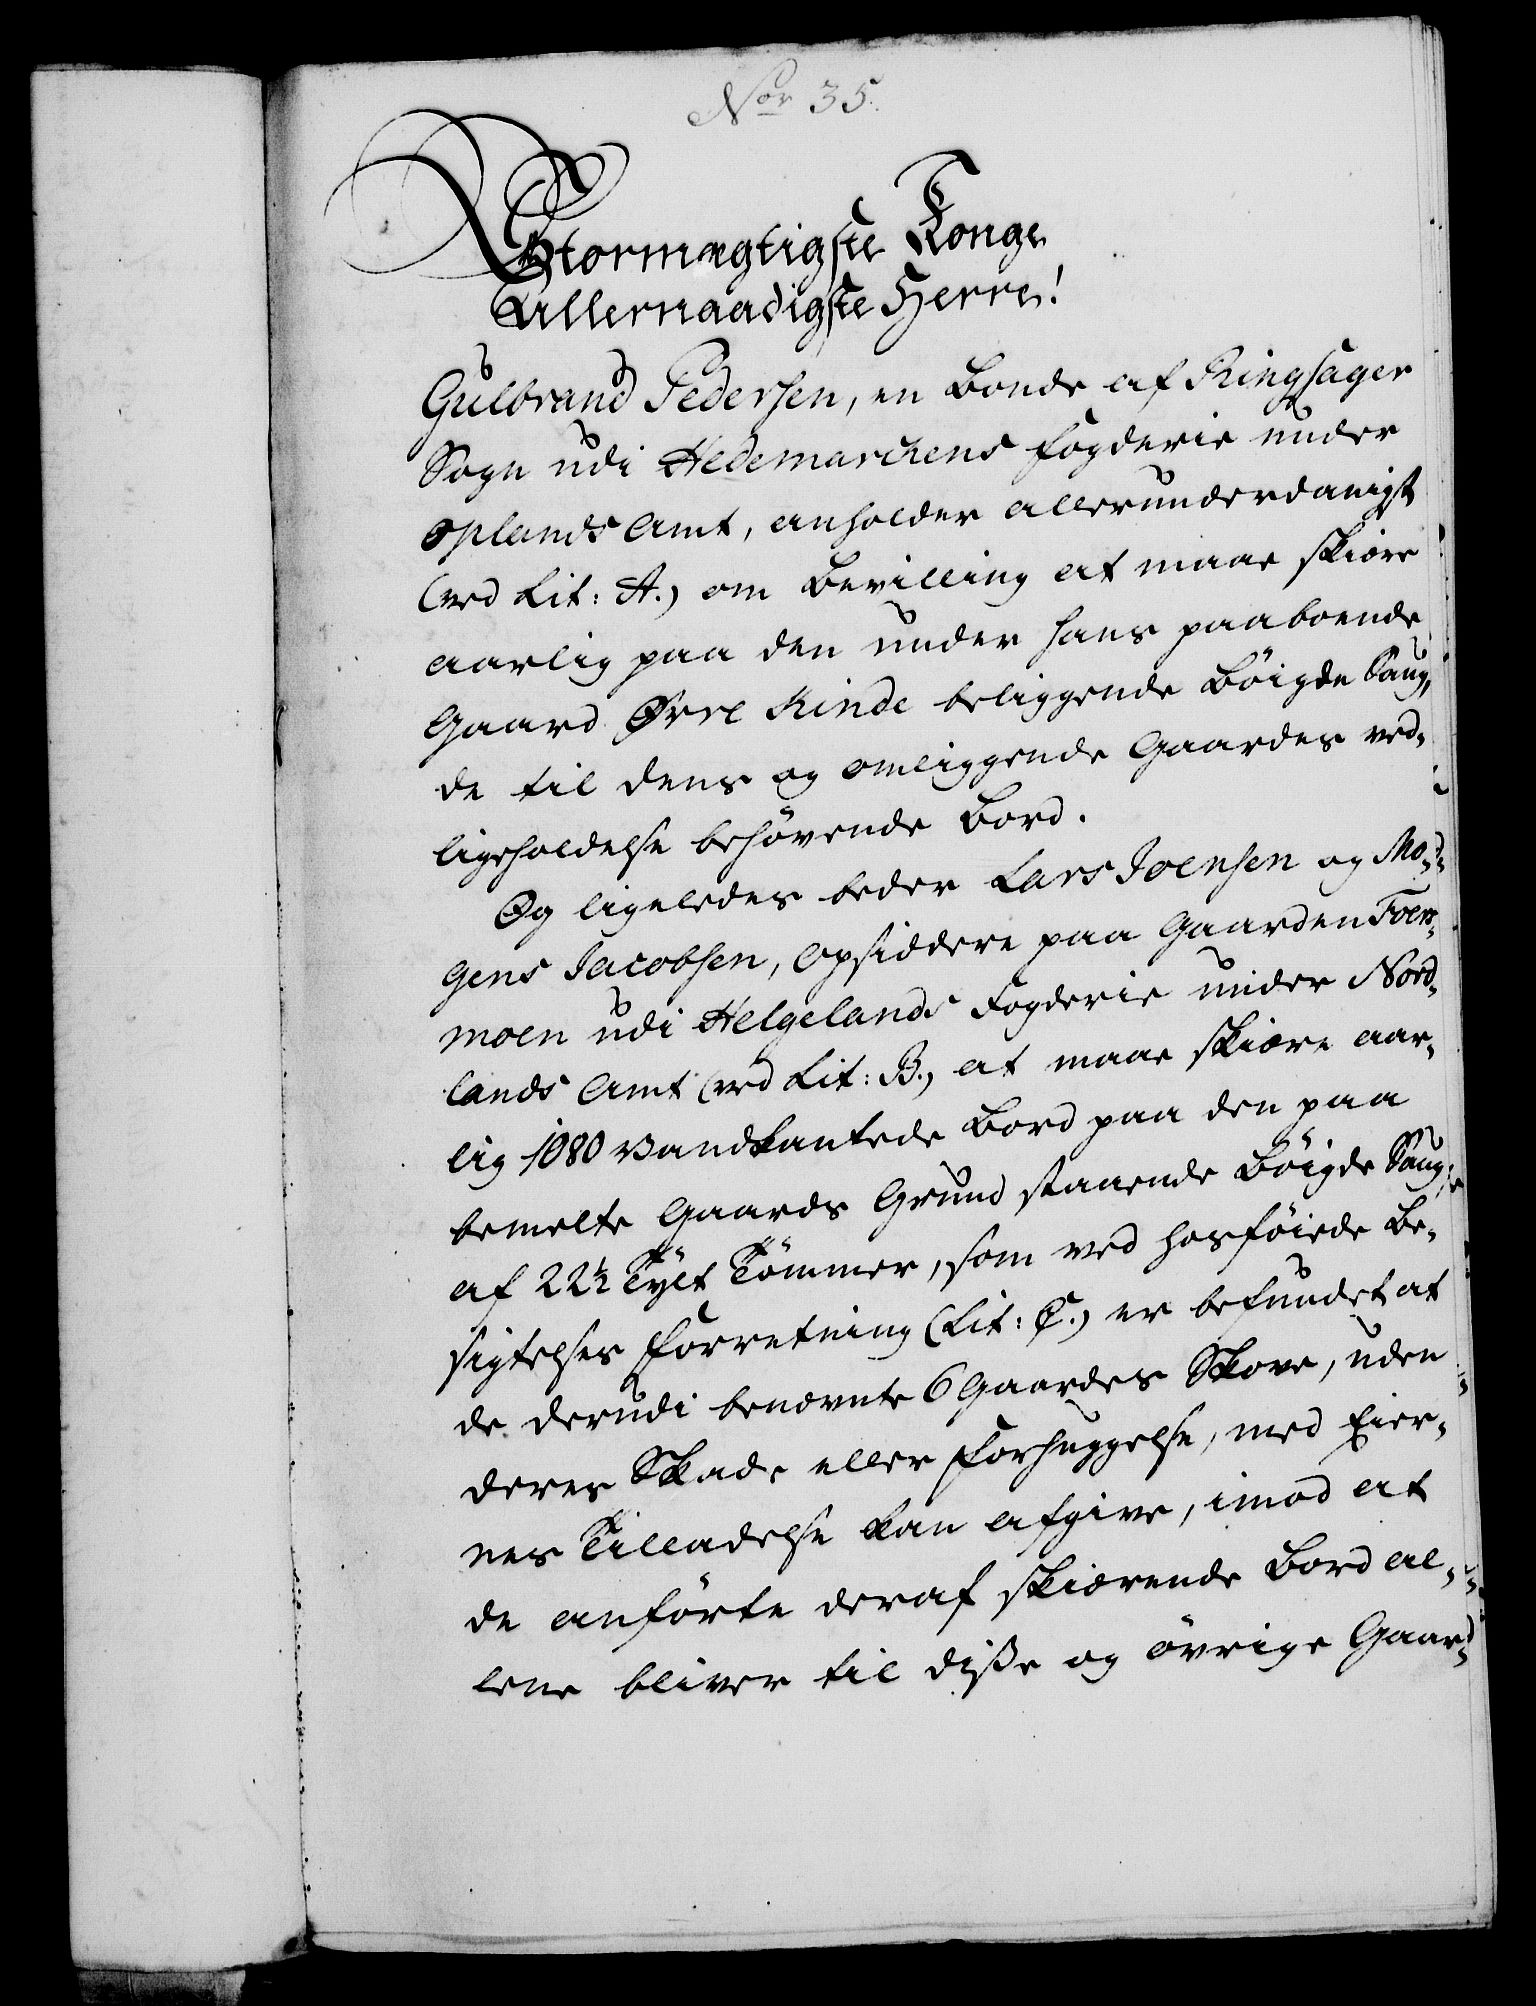 Nor 35.
Stormægtigste Konge
Allernaadigste Herre!
Gulbrand Pedersen, en Bonde af Ringsager
Sogn udi Hedemarckens Fogderie under
Oplands Amt, anholder allerunderdanigst
(ved Lit: A.) om Bevilling at maae skiære
aarlig paa den under hans paaboende
Gaard Øvre Rinde beliggende Böigde Saug,
de til dens og omliggende Gaardes ved-
ligeholdelse behövende Bord.
Og ligeledes beder Lars Joensen og Mo-
gens Jacobsen, Opsiddere paa Gaarden Foers-
moen udi Helgelands Fogderie under Nord-
lands Amt (ved Lit: B.) at maae skiære aar-
lig 1080 Vandkantede Bord paa den paa
bemelte Gaards Grund staaende Böigde Saug,
af 22½ Tylt Tömmer, som ved hosföiede Be-
sigtelses Forretning (Lit: C.) er befundet at
de derudi benævnte 6 Gaardes Skove, uden
deres Skade eller Forhuggelse, med Eier-
nes Tilladelse kan afgive, imod at
de anförte deraf skiærende Bord al-
lene bliver til disse og övrige Gaar-